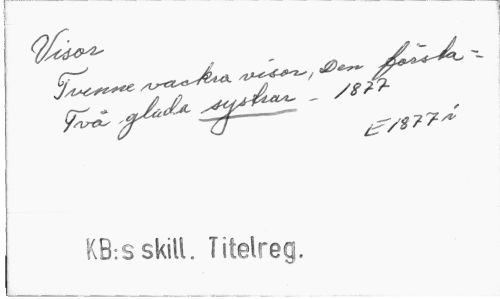 Visor
Tvenne vackra visor, Den första =
Två glada systrar - 1877
E1877 i
KB:s skill. Titelreg.